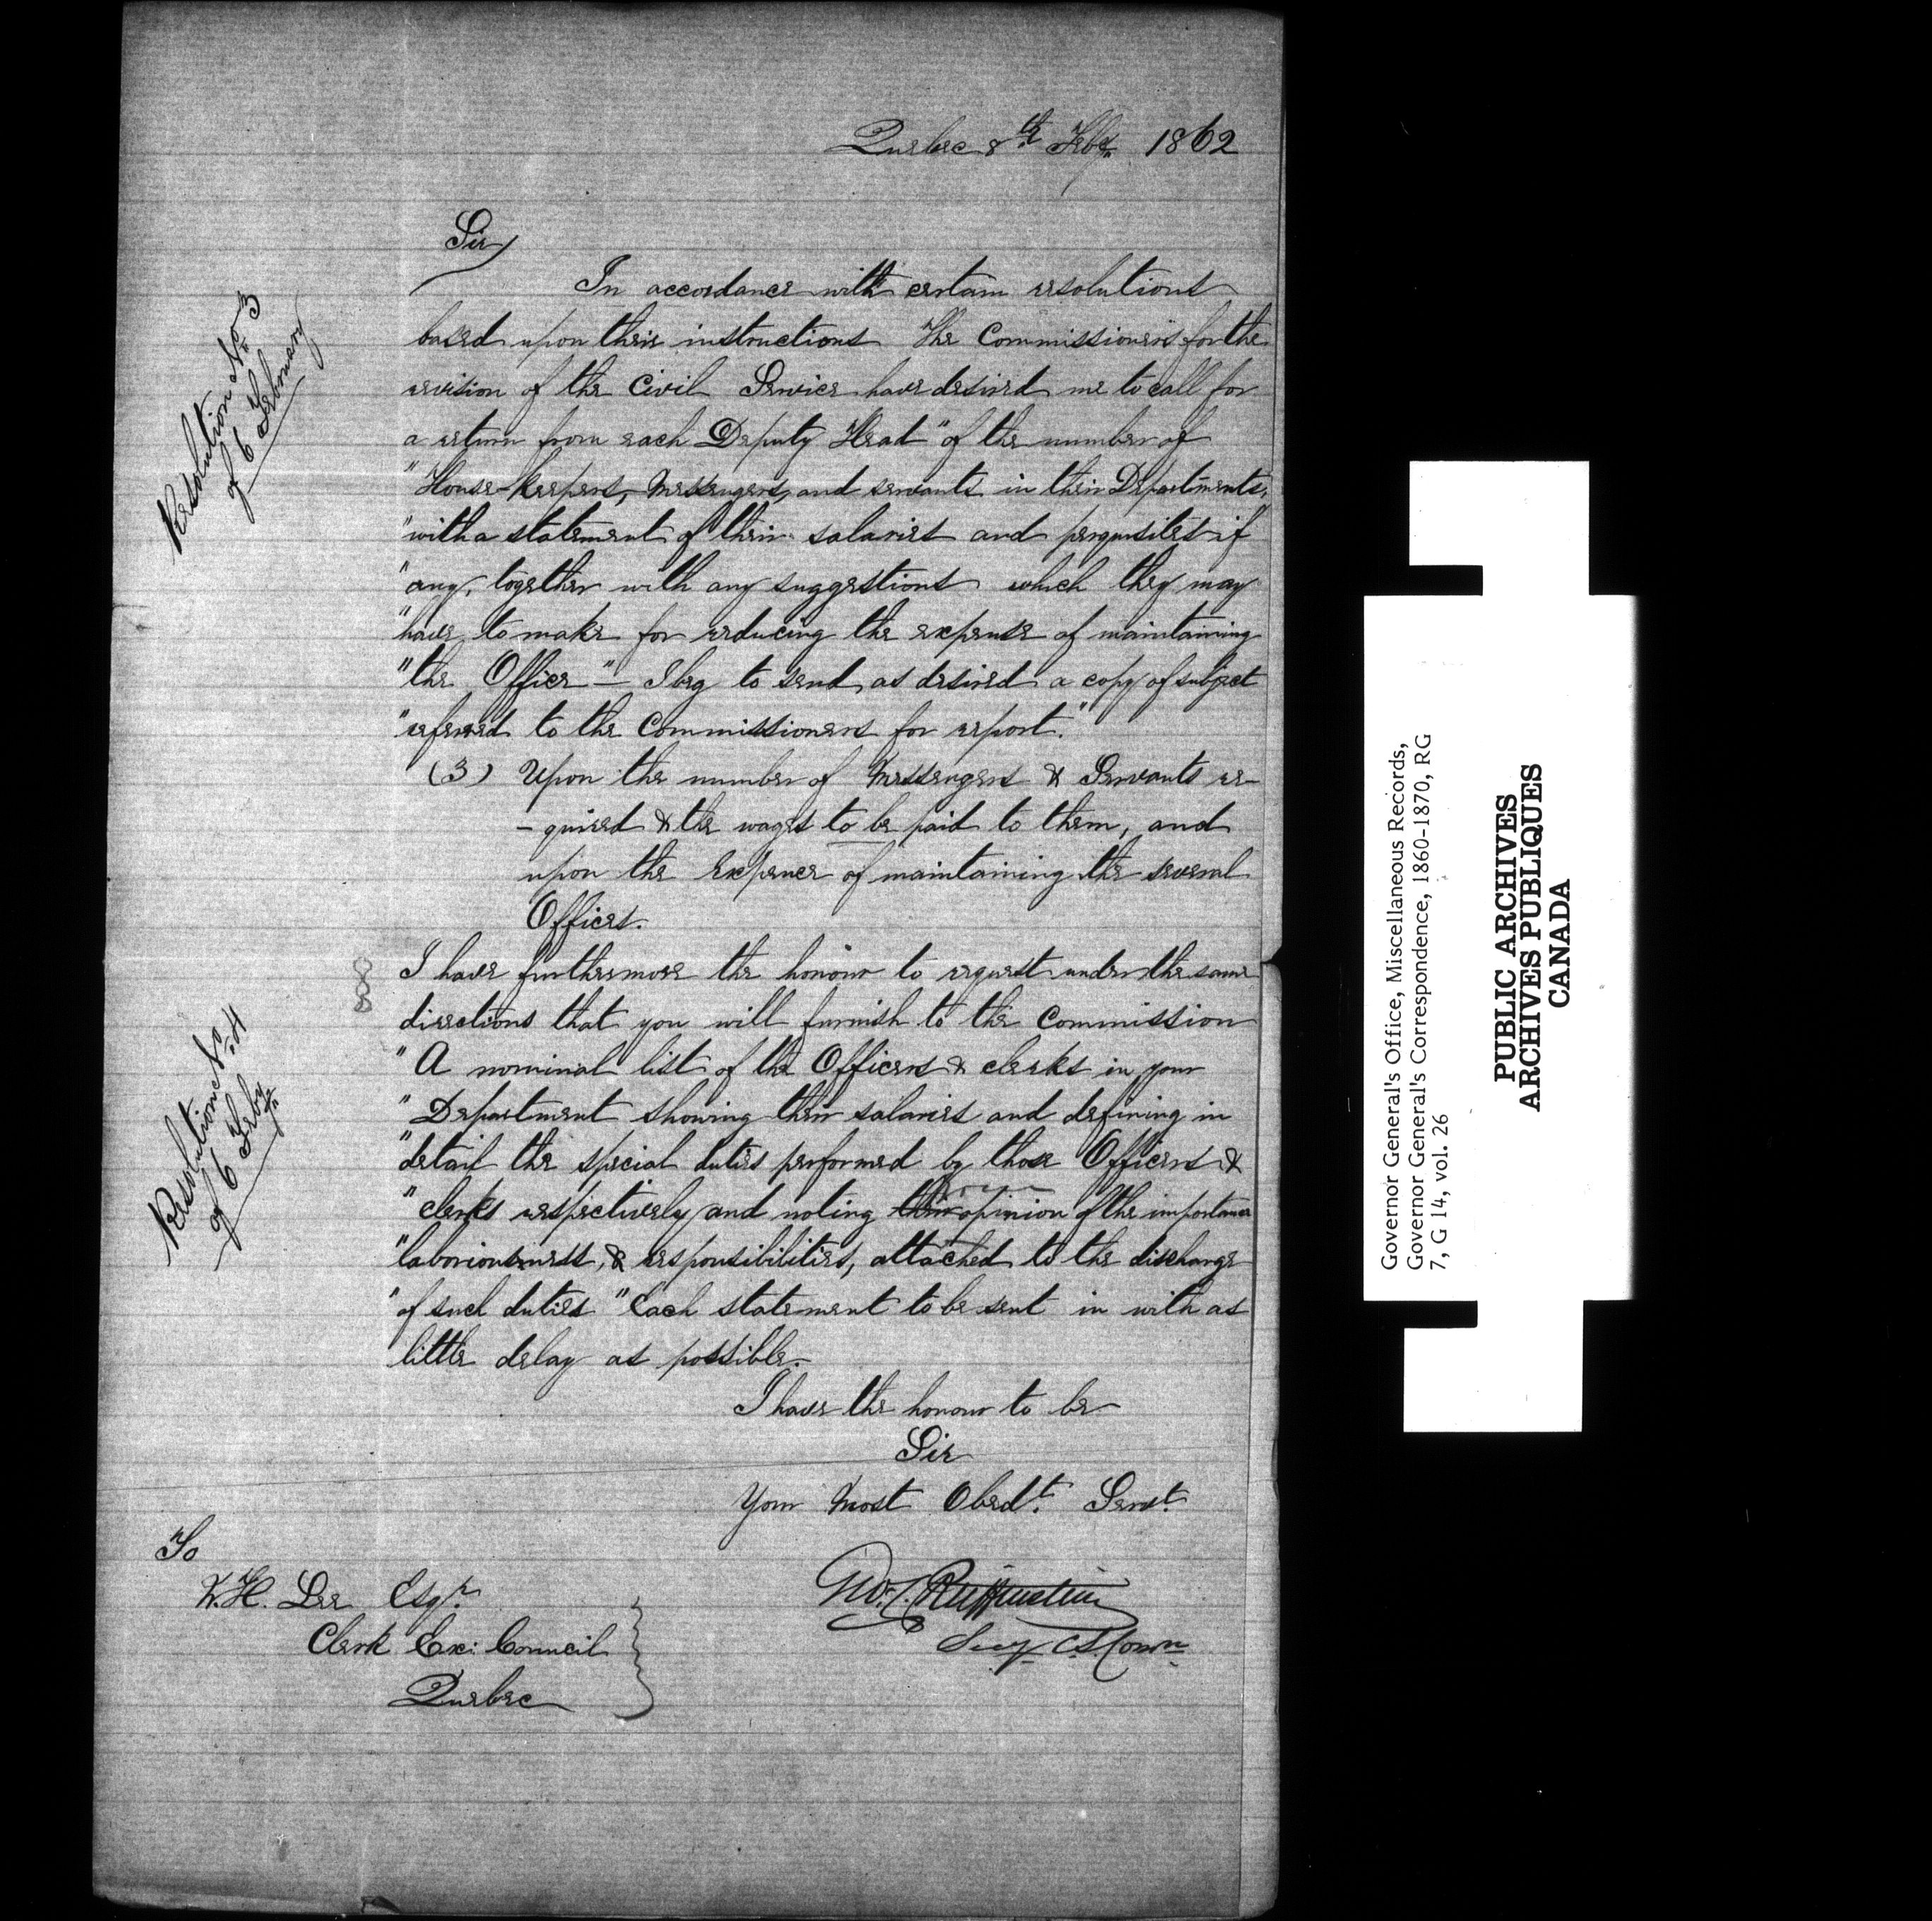 Quebec 8th Feby. 1862
Sir
In accordance with certain resolutions
based upon their instructions The Commissioners for the
revision of the Civil Service have desired me to call for
a return from each Deputy Head "of the number of
"House-keepers, Messengers, and servants in their Departments,
"with a statement of their salaries and perquisites if
"any, together with any suggestions which they may
"have to make for reducing the expense of maintaining
"the Office" — I beg to send as desired a copy of subject
"referred to the Commissioners for report."
(3) Upon the number of Messengers & Servants re-
-quired & the wages to be paid to them, and
upon the Expence of maintaining the several
Offices.
I have furthermore the honour to request under the same
directions that you will furnish to the Commission
"A nominal list of the Officers & clerks in your
"Department showing their salaries and defining in
"detail the special duties performed by those Officers &
"clerks respectively and noting their opinion of the importance
"laboriousness, & responsibilities, attached to the discharge
"of such duties" Each statement to be sent in with as
little delay as possible.
I have the honour to be
Sir
Your Most Obedt. Servt.
Secy C.S. Comn
To
W.H. Lee Esqr.
Clerk Exe: Council
Quebec
Resolution No 3
of 6 February
Resolution No. 4
of 6 Feby.
Governor General's Office, Miscellaneous Records,
Governor General's Correspondence, 1860-1870, RG
7, G 14, vol. 26
PUBLIC ARCHIVES
ARCHIVES PUBLIQUES
CANADA